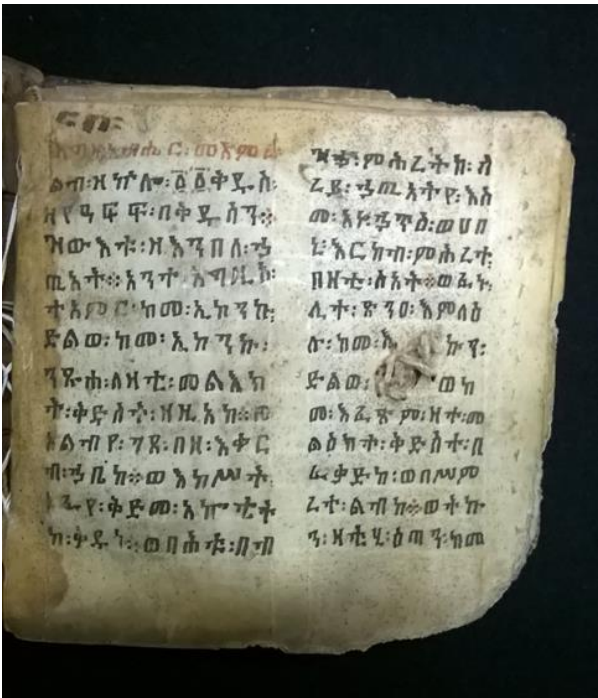 ልብ፡ዘኵሎ፡፩፩ቅዱስ፡
ዘየዓርፍ፡በቅዱሳን።
ዝውእቱ፡ዘእንበለ፡ኃ
ጢአት።አንተ እግዚኦ፡
ተአምር፡ከመ፡ኢኮንኩ፡
ድልወ፡ከመ፡ኢኮንኩ፡
ንጹሐ፡ለዛቲ፡መልእክ
ት፡ቅድስት፡ዘዚአከ።ወ
አልብየ፡ገጸ፡በዘ፡እቀር
ብ፡ኃቤከ።ወእከሥት፡
አፉየ፡ቅድመ፡አኰቴት
ከ፡ቅዱስ፡ወበሕቱ፡በብ
ዝኃ፡ምሕረትከ፡ስ
ረይ፡ኃጢአትየ፡እስ
መ፡አነ፡ኃጥዕ፡ወሀበ
ኒ፡እርከብ፡ምሕረተ፡
በዛቲ፡ሰአት።ወፈኑ፡
ሊተ፡ጽንዐ፡እምላዕ
ሉ፡ከመ፡እኩን፡
ድልወ፡ወከ
መ፡እፈጽም፡ዛተ፡መ
ልዕክተ፡ቅድስተ፡በ
ፈቃድከ፡ወበሥም
ረተ፡ልብከ።ወትኩ
ን፡ዛቲሂ፡ዕጣን፡ከመ